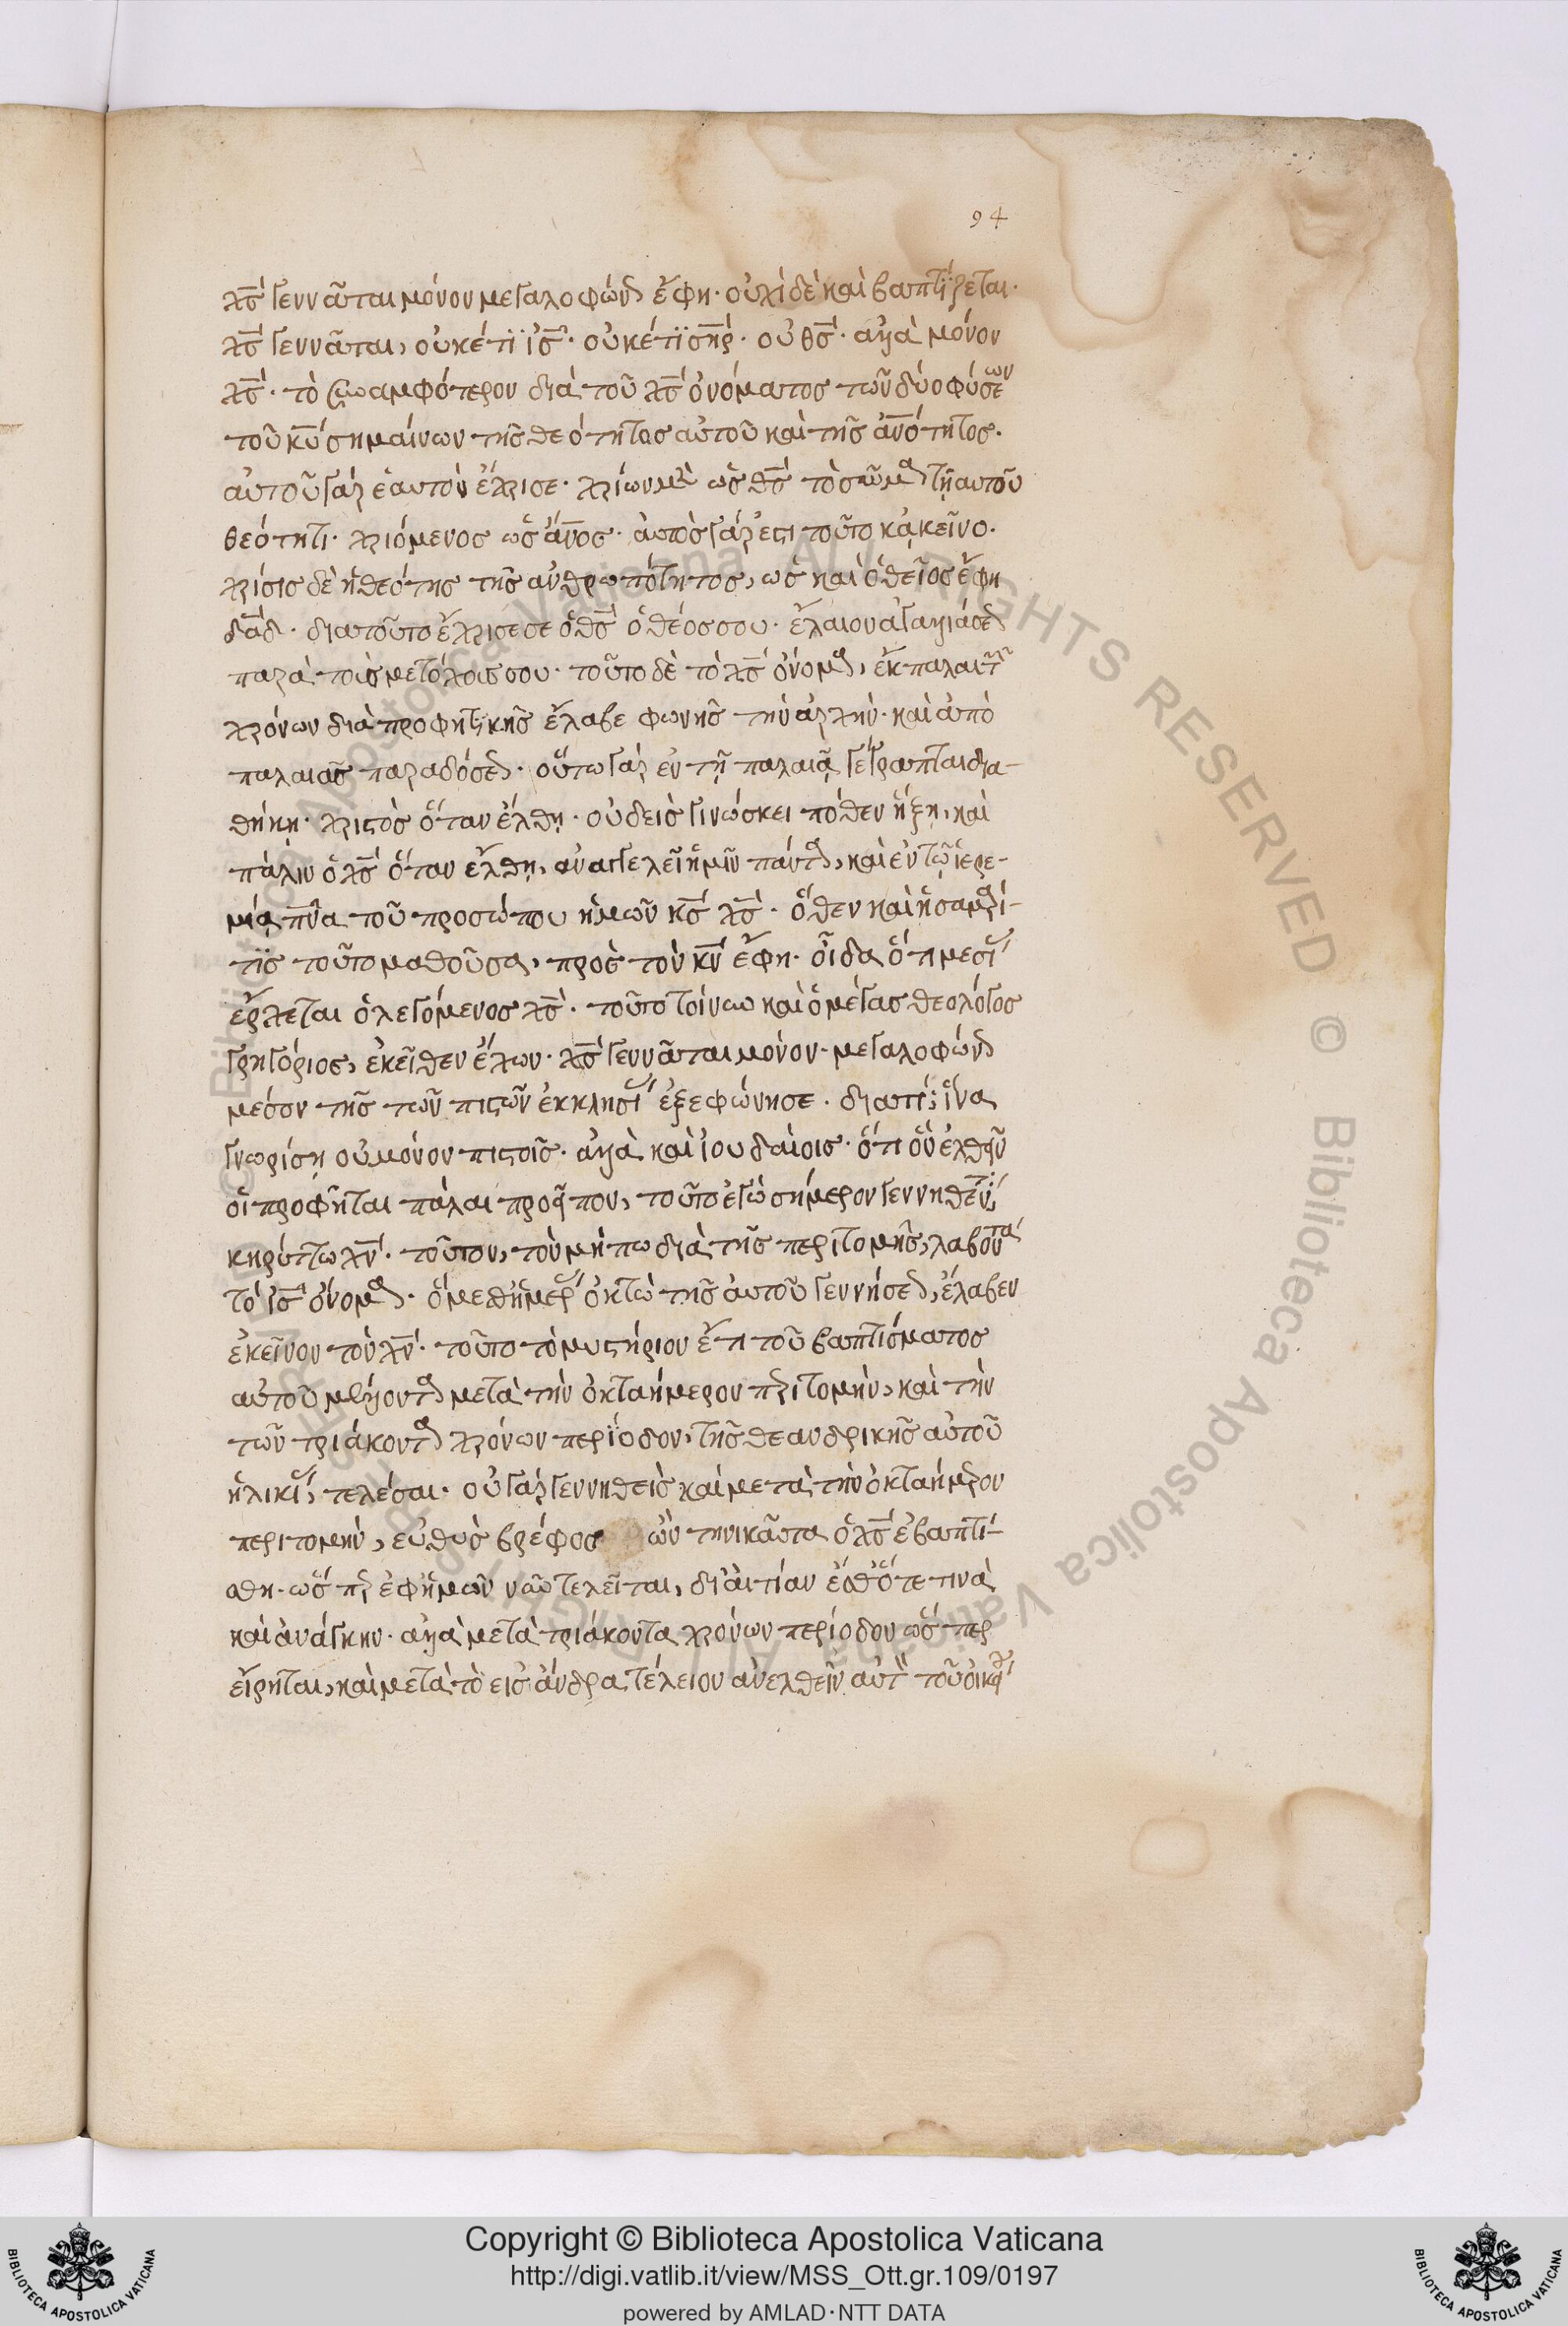 94
χς γεννᾶται μόνον μεγαλοφώνως ἔφη· οὐχὶ δὲ καὶ βαπτίζεται·
χς γεννᾶται, οὐκέτι ϊς· οὐκέτι σηρ· οὐ θς· ἀλλὰ μόνον
χς· τὸ συναμφότερον διὰ τοῦ χς ὀνόματος τῶν δύο φύσεων
τοῦ κυ σημαίνων τῆς θεότητος αὐτοῦ καὶ τῆς ἀνότητος·
αὐτοῦ γὰρ ἑαυτὸν ἔχρισε· χρίων μὲν ὡς θς τὸ σῶμα τῇ αὐτοῦ
θεότητι· χριόμενος ὡς ἄνος· αὐτὸς γάρ ἐστι τοῦτο κἀκεῖνο·
χρίσις δὲ ἡ θεότης τῆς ἀνθρωπότητος, ὡς καὶ ὁ θεῖος ἔφη
δαδ· διατοῦτο ἔχρισε σε ὁ θς ὁ θεός σου· ἔλαιον ἀγαλλιάσεως
παρὰ τοὺς μετόχοις σου· τοῦτο δὲ τὸ χς ὄνομα, ἐκ παλαιῶν
χρόνων διὰ προφητικῆς ἔλαβε φωνῆς τὴν ἀρχήν· καὶ ἀπὸ
παλαιᾶς παραδόσεως· οὕτω γὰρ ἐν τῇ παλαιᾷ γέγραπται δια-
θήκη· χριστὸς ὅταν ἔλθη· οὐδεὶς γινώσκει πόθεν ἥξη, καὶ
πάλιν ὁ χς ὅταν ἔλθη, ἀναγγελεῖ ἡμῖν πάντα, καὶ ἐν τῷ ἱερε-
μίᾳ πνα τοῦ προσώπου ἡμῶν κς χς· ὅθεν καὶ ἡ σαμαρεῖ-
τις τοῦτο μαθοῦσα, πρὸς τὸν κν ἔφη· οἶδα ὅτι μεσίας
ἔρχεται ὁ λεγόμενος χς· τοῦτο τοίνυν καὶ ὁ μέγας θεολόγος
γρηγόριος, ἐκεῖθεν ἔχων· χς γεννᾶται μόνον· μεγαλοφώνως
μέσον τῆς τῶν πιστῶν ἐκκλησίας ἐξεφώνησε· διατί; ἵνα
γνωρίση οὐ μόνον πιστοῖς· ἀλλὰ καὶ ἰουδαίοις· ὅτι ὃν ἐλθεῖν
οἱ προφῆται πάλαι προεῖπον, τοῦτο ἐγὼ σήμερον γεννηθέντα
κηρύττω χν· τοῦτον, τὸν μήπω διὰ τῆς περιτομῆς, λαβόντα
τὸ ις ὄνομα· ὃ μεθ' ἡμέρας ὀκτὼ τῆς αὐτοῦ γεννήσεως, ἔλαβεν
ἐκεῖνον τὸν χν· τοῦτο τὸ μυστήριον ἔτι τοῦ βαπτίσματος
αὐτοῦ μέλλοντα μετὰ τὴν ὀκταήμερον περιτομὴν, καὶ τὴν
τῶν τριάκοντα χρόνων περίοδον, τῆς θεανδρικῆς αὐτοῦ
ἡλικίας, τελέσαι· οὐ γὰρ γεννηθεὶς καὶ μετὰ τὴν ὀκταήμερον
περιτομὴν, εὐθὺς βρέφος ὢν τηνικαῦτα ὁ χς ἐβαπτί-
σθη· ὥσπερ ἐφ' ἡμῶν νῦν τελεῖται, δι' αἰτίαν ἔσθ' ὅτε τινὰ
καὶ ἀνάγκην· ἀλλὰ μετὰ τριάκοντα χρόνων περίοδον ὥσπερ
εἴρηται, καὶ μετὰ τὸ εἰς ἄνδρα τέλειον ἀνελθεῖν αὐτὸν τοῦ
Copyright © Biblioteca Apostolica Vaticana
http://digi.vatlib.it/view/MSS_Ott.gr.109/0197
powered by AMLAD·NTT DATA